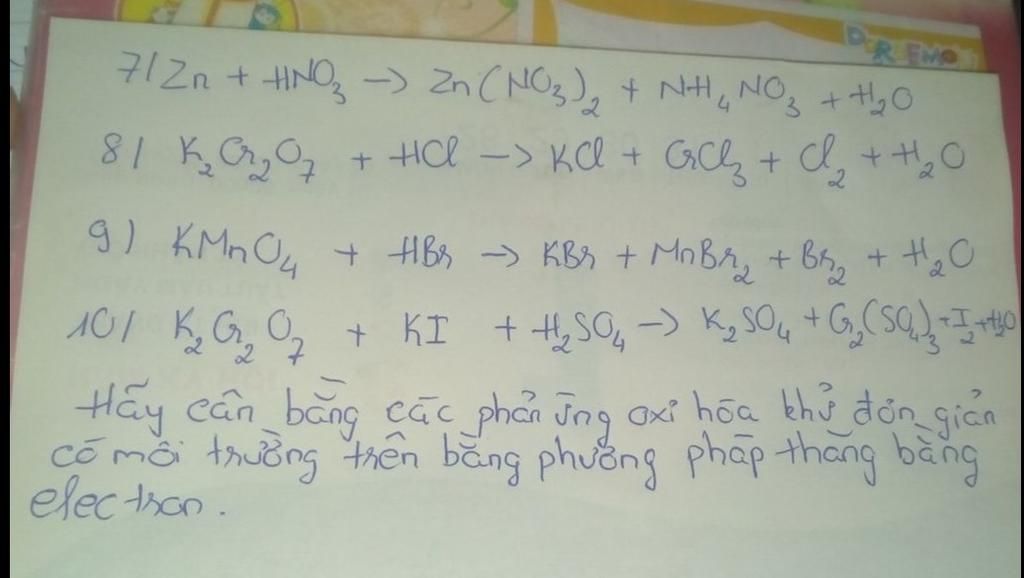 DORAEMO
7/ Zn + HNO₃ → Zn(NO₃)₂ + NH₄NO₃ + H₂O
8/ K₂Cr₂O₇ + HCl → KCl + CrCl₃ + Cl₂ + H₂O
9) KMnO₄ + HBr → KBr + MnBr₂ + Br₂ + H₂O
10/ K₂Cr₂O₇ + KI + H₂SO₄ → K₂SO₄ + Cr₂(SO₄)₃ + I₂ + H₂O
Hãy cân bằng các phản ứng oxi hóa khử đơn giản
có môi trường trên bằng phương pháp thăng bằng
electron.